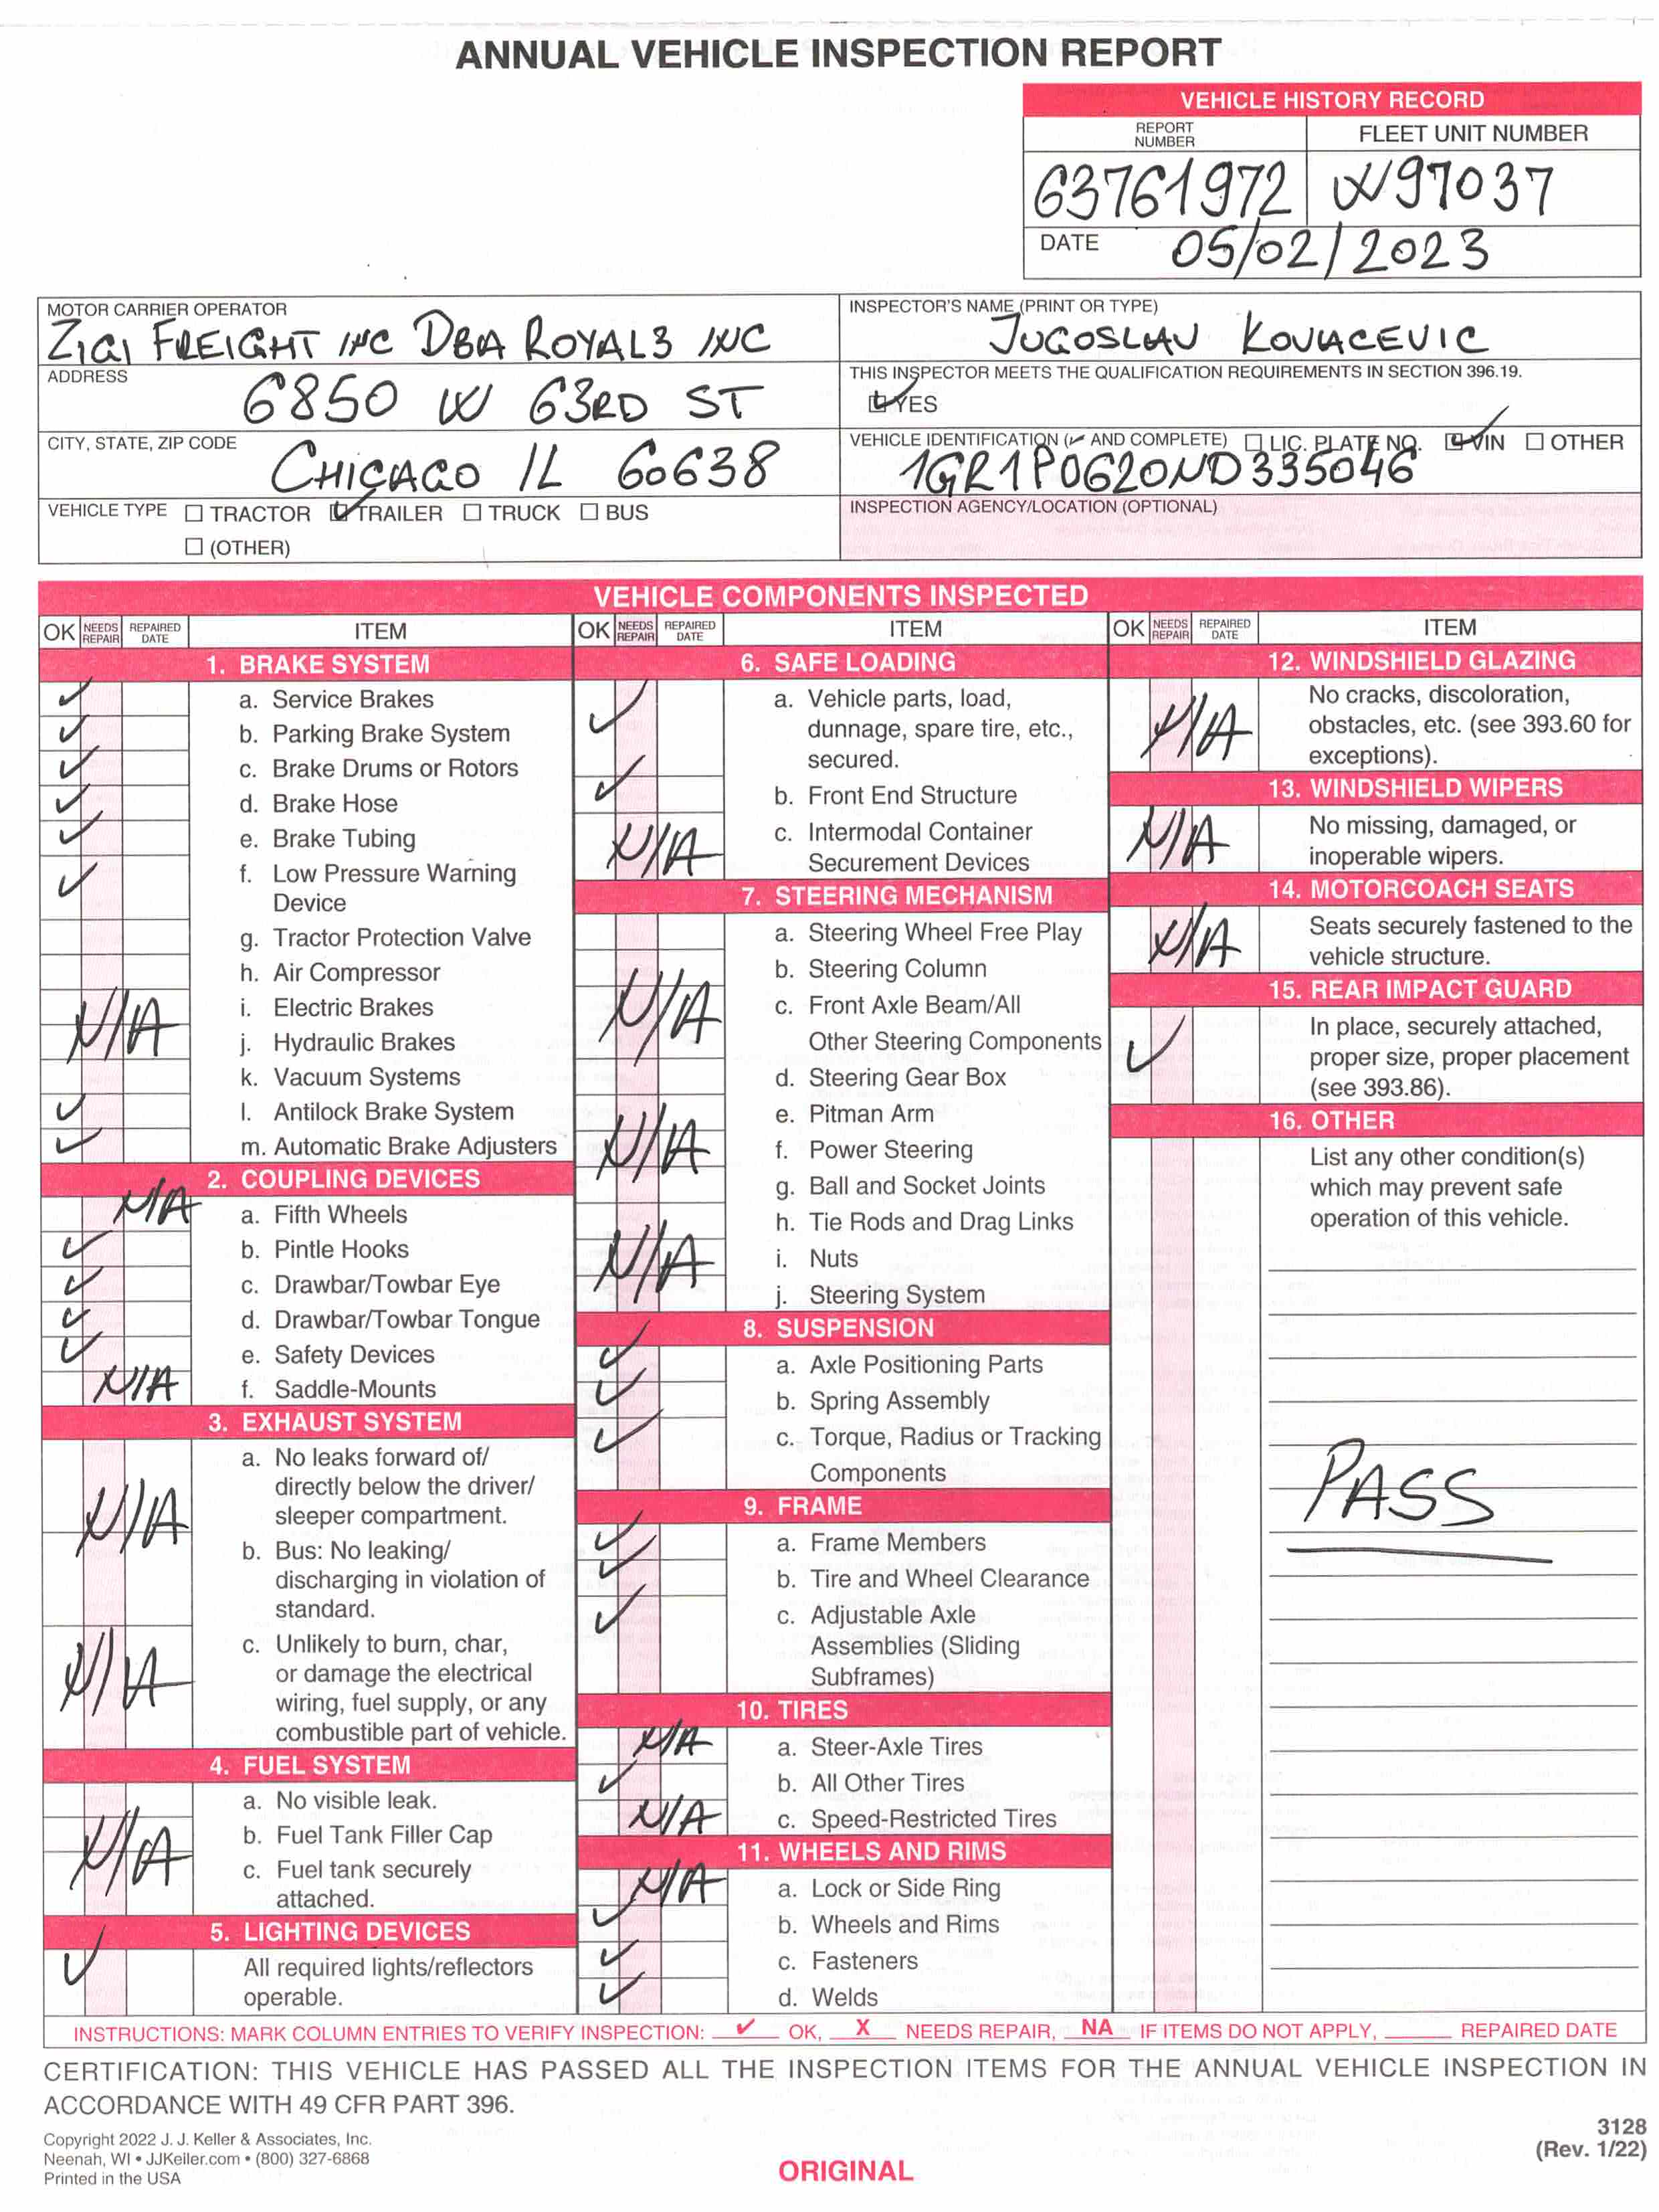 ANNUAL VEHICLE INSPECTION REPORT
VEHICLE HISTORY RECORD
REPORT NUMBER
FLEET UNIT NUMBER
63761972
W97037
DATE 05/02/2023
MOTOR CARRIER OPERATOR
ZIGI FREIGHT INC DBA ROYAL3 INC
ADDRESS
6850 W 63RD ST
CITY, STATE, ZIP CODE
CHICAGO IL 60638
VEHICLE TYPE ☐ TRACTOR ☑ TRAILER ☐ TRUCK ☐ BUS
☐ (OTHER)
INSPECTOR'S NAME (PRINT OR TYPE)
JUGOSLAV KOVACEVIC
THIS INSPECTOR MEETS THE QUALIFICATION REQUIREMENTS IN SECTION 396.19.
☑ YES
VEHICLE IDENTIFICATION (✓ AND COMPLETE) ☐ LIC. PLATE NO. ☑ VIN ☐ OTHER
1GR1P0620ND335046
INSPECTION AGENCY/LOCATION (OPTIONAL)
VEHICLE COMPONENTS INSPECTED
OK NEEDS REPAIR REPAIRED DATE ITEM
1. BRAKE SYSTEM
✓ a. Service Brakes
✓ b. Parking Brake System
✓ c. Brake Drums or Rotors
✓ d. Brake Hose
✓ e. Brake Tubing
✓ f. Low Pressure Warning
Device
g. Tractor Protection Valve
h. Air Compressor
N/A i. Electric Brakes
j. Hydraulic Brakes
k. Vacuum Systems
✓ l. Antilock Brake System
✓ m. Automatic Brake Adjusters
2. COUPLING DEVICES
N/A a. Fifth Wheels
✓ b. Pintle Hooks
✓ c. Drawbar/Towbar Eye
✓ d. Drawbar/Towbar Tongue
✓ e. Safety Devices
N/A f. Saddle-Mounts
3. EXHAUST SYSTEM
a. No leaks forward of/
directly below the driver/
sleeper compartment.
N/A
b. Bus: No leaking/
discharging in violation of
standard.
N/A c. Unlikely to burn, char,
or damage the electrical
wiring, fuel supply, or any
combustible part of vehicle.
4. FUEL SYSTEM
a. No visible leak.
N/A b. Fuel Tank Filler Cap
c. Fuel tank securely
attached.
5. LIGHTING DEVICES
✓ All required lights/reflectors
operable.
OK NEEDS REPAIR REPAIRED DATE ITEM
6. SAFE LOADING
✓ a. Vehicle parts, load,
dunnage, spare tire, etc.,
secured.
✓ b. Front End Structure
N/A c. Intermodal Container
Securement Devices
7. STEERING MECHANISM
a. Steering Wheel Free Play
b. Steering Column
N/A c. Front Axle Beam/All
Other Steering Components
d. Steering Gear Box
e. Pitman Arm
N/A f. Power Steering
g. Ball and Socket Joints
h. Tie Rods and Drag Links
N/A i. Nuts
j. Steering System
8. SUSPENSION
✓ a. Axle Positioning Parts
✓ b. Spring Assembly
✓ c. Torque, Radius or Tracking
Components
9. FRAME
✓ a. Frame Members
✓ b. Tire and Wheel Clearance
✓ c. Adjustable Axle
Assemblies (Sliding
Subframes)
10. TIRES
N/A a. Steer-Axle Tires
✓ b. All Other Tires
N/A c. Speed-Restricted Tires
11. WHEELS AND RIMS
N/A a. Lock or Side Ring
✓ b. Wheels and Rims
✓ c. Fasteners
✓ d. Welds
OK NEEDS REPAIR REPAIRED DATE ITEM
12. WINDSHIELD GLAZING
N/A No cracks, discoloration,
obstacles, etc. (see 393.60 for
exceptions).
13. WINDSHIELD WIPERS
N/A No missing, damaged, or
inoperable wipers.
14. MOTORCOACH SEATS
N/A Seats securely fastened to the
vehicle structure.
15. REAR IMPACT GUARD
✓ In place, securely attached,
proper size, proper placement
(see 393.86).
16. OTHER
List any other condition(s)
which may prevent safe
operation of this vehicle.
PASS
INSTRUCTIONS: MARK COLUMN ENTRIES TO VERIFY INSPECTION: ✓ OK, X NEEDS REPAIR, NA IF ITEMS DO NOT APPLY, REPAIRED DATE
CERTIFICATION: THIS VEHICLE HAS PASSED ALL THE INSPECTION ITEMS FOR THE ANNUAL VEHICLE INSPECTION IN
ACCORDANCE WITH 49 CFR PART 396.
Copyright 2022 J. J. Keller & Associates, Inc.
Neenah, WI • JJKeller.com • (800) 327-6868
Printed in the USA
ORIGINAL
3128
(Rev. 1/22)